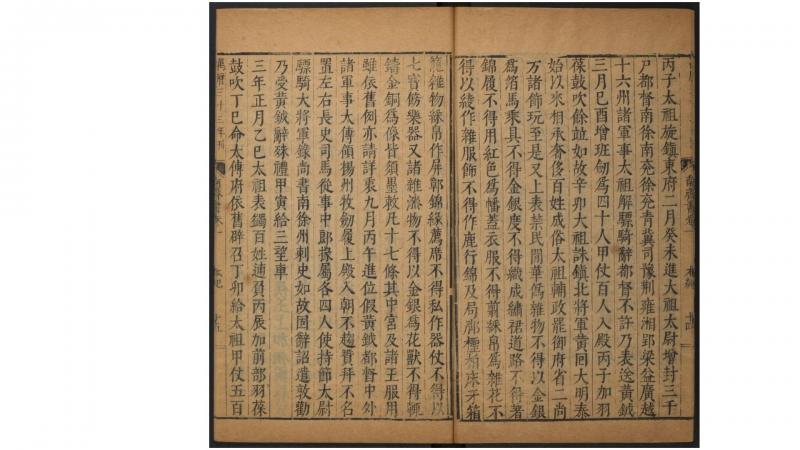 丙子太祖旋鎮東府二月癸未進太祖太尉增封三千
戸都督南徐南兖徐兖青冀司豫荆雍湘郢梁益廣越
十六州諸軍事太祖解驃騎辭都督不許乃表送黄鉞
三月己酉增班劒爲四十人甲仗百人入殿丙子加羽
葆鼓吹餘竝如故辛卯太祖誅鎮北將軍黄回大明泰
始以來相承奢侈百姓成俗太祖輔政罷御府省二尚
方諸飾玩至是又上表禁民間華僞雜物不得以金銀
爲箔馬乗具不得金銀度不得織成繡裙道路不得著
錦履不得用紅色爲幡蓋衣服不得剪綵帛爲雜花不
得以綾作雜服飾不得作鹿行錦及局脚檉柏牀牙箱
籠雜物綵帛作屏鄣錦緣薦席不得私作器仗不得以
七寳飾樂器又諸雜漆物不得以金銀爲花獸不得輒
鑄金銅爲像皆須墨敕凡十七條其中宫及諸王服用
雖依舊例亦請詳衷九月丙午進位假黄鉞都督中外
諸軍事太傅領揚州牧劒履上殿入朝不趨贊拜不名
置左右長史司馬從事中郎掾屬各四人使持節太尉
驃騎大將軍録尚書南徐州刺史如故固辭詔遣敦勸
乃受黄鉞辭殊禮甲寅給三望車
三年正月乙巳太祖表蠲百姓逋負丙辰加前部羽葆
鼓吹丁巳命太傅府依舊辟召丁卯給太祖甲仗五百
萬曆三十三年刊